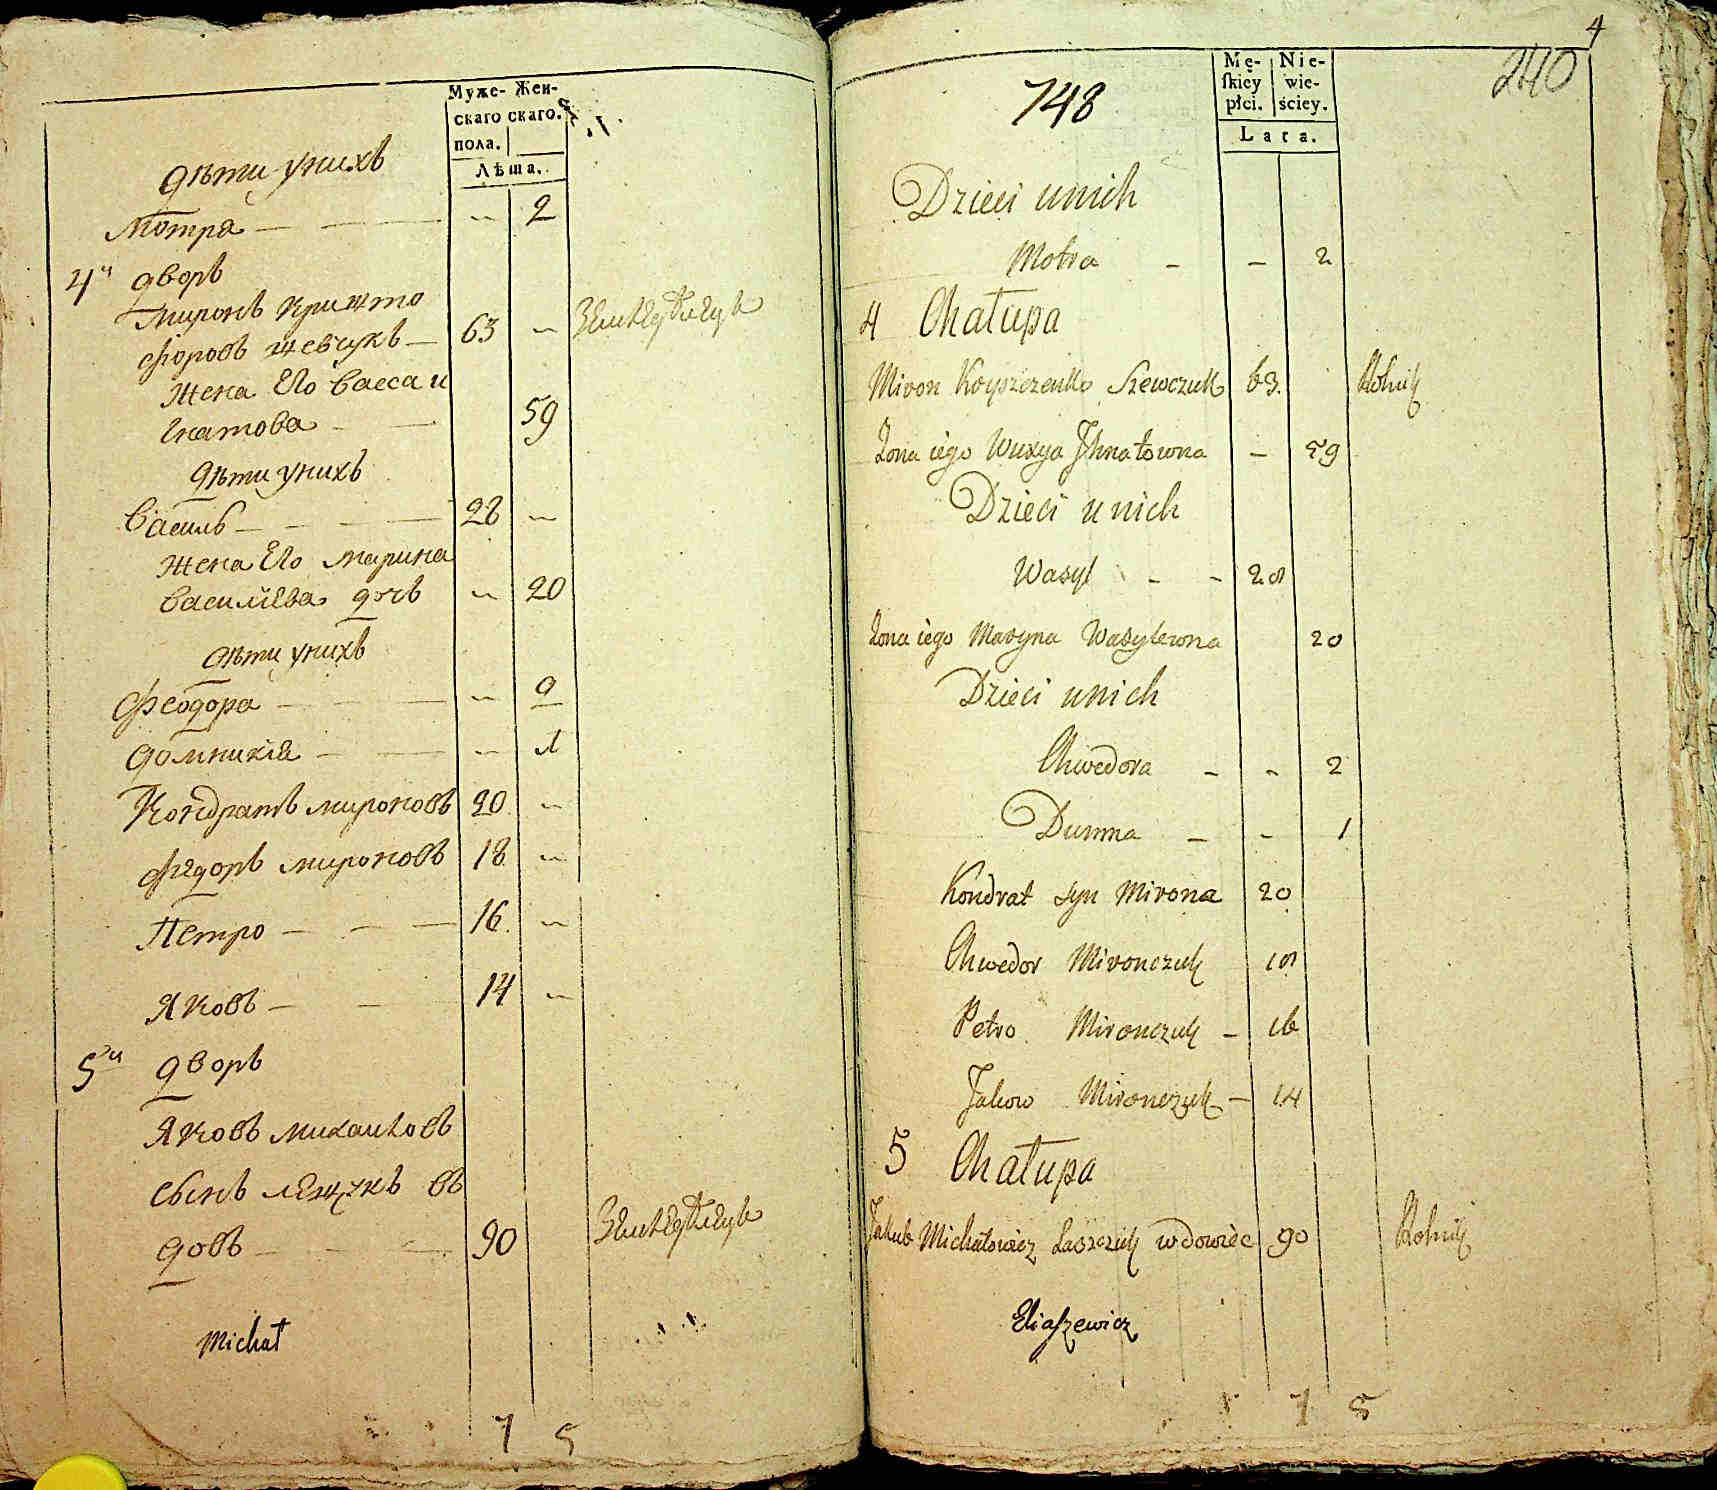 Муже- Жен-
скаго скаго.
пола.
Лѣта.
дѣти унихъ
Мотра — — ~ 2
4й дворъ
Миронъ Криште
форовъ шевчукъ — 63 ~
жена Его Васса и
гнатова — — 59
дѣти унихъ
Василь — — — 28 ~
жена Его марина
василѣва дочь ~ 20
дѣти унихъ
феодора — — — ~ 2
домникія — — ~ 1
Кондратъ мироновъ 20 ~
фѣдоръ мироновъ 18 ~
Петро — — — 16 ~
Яковъ — — 14 ~
5й дворъ
Яковъ михаиловъ
сынъ въ
довъ — — — 90
Michał
7 5
4
240
748
Mę- Nie-
ſkiey wie-
płci. ściey.
Lata.
Dzieci unich
Motra - - 2
4 Chałupa
Miron Kryszczenko Szewczuk 63. Rolnik
Żona iego Wasya Ihnatowna - 59
Dzieci unich
Wasyl - - 28
Żona iego Maryna Wasylewna 20
Dzieci unich
Chwedora - - 2
Dumna - - 1
Kondrat syn Mirona 20
Chwedor Mironczuk 18
Petro Mironczuk - 16
Jakow Mironczuk - 14
5 Chałupa
Jakub Michałowicz Laszczuk wdowiec 90 Rolnik
Eliaſzewicz
7 5